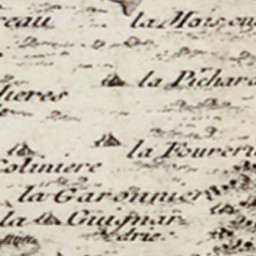 reau
la Maison
la Pichard
lieres
la Foureru
Coliniere
la Garonniere
la Guignar
drie